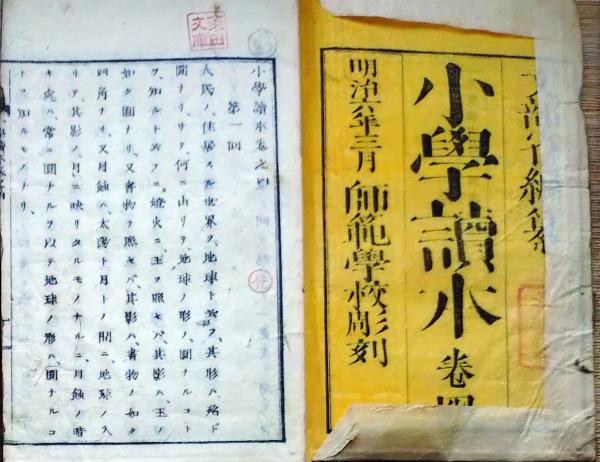 文部省編纂
小學讀本 巻四
明治六年三月 師範學校彫刻
文庫
小學讀本巻之四
第一回
人民ノ、住居スル世界ヲ、地球ト云フ、其形ハ、殆ド
圓ナリ、何ニ由リテ、地球ノ形ノ、圓ナルコト
ヲ、知ルト云フニ、燈火ニ、玉ヲ照セバ、其影ハ、玉ノ
如ク圓ナリ、又書物ヲ照セバ、其影ハ、書物ノ如ク
四角ナリ、又月蝕ハ、太陽ト月トノ間ニ、地球ノ入
リテ、其影ノ、月ニ映リタルモノナルニ、月蝕ノ時
キ處ハ、常ニ圓ナルヲ以テ、地球ノ形ハ、圓ナルコ
トヲ知ルモノナリ、